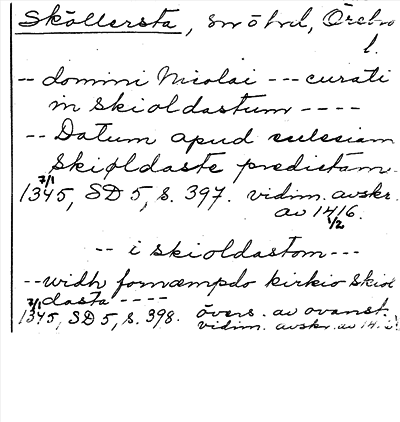 Sköllersta, sn ö hd, Örebro
l.
-- domini Nicolai --- curati
in skioldastum ----
-- Datum apud eclesiam
skioldaste predictam.
1345 7/1, SD 5, s. 397. vidim. avskr.
av 1416. 1/2
-- i skioldastom ---
-- widh fornæmpdo kirkio skiol
dasta ----
1345 7/1, SD 5, s. 398. övers. av ovanst.
vidim. avskr. av 14